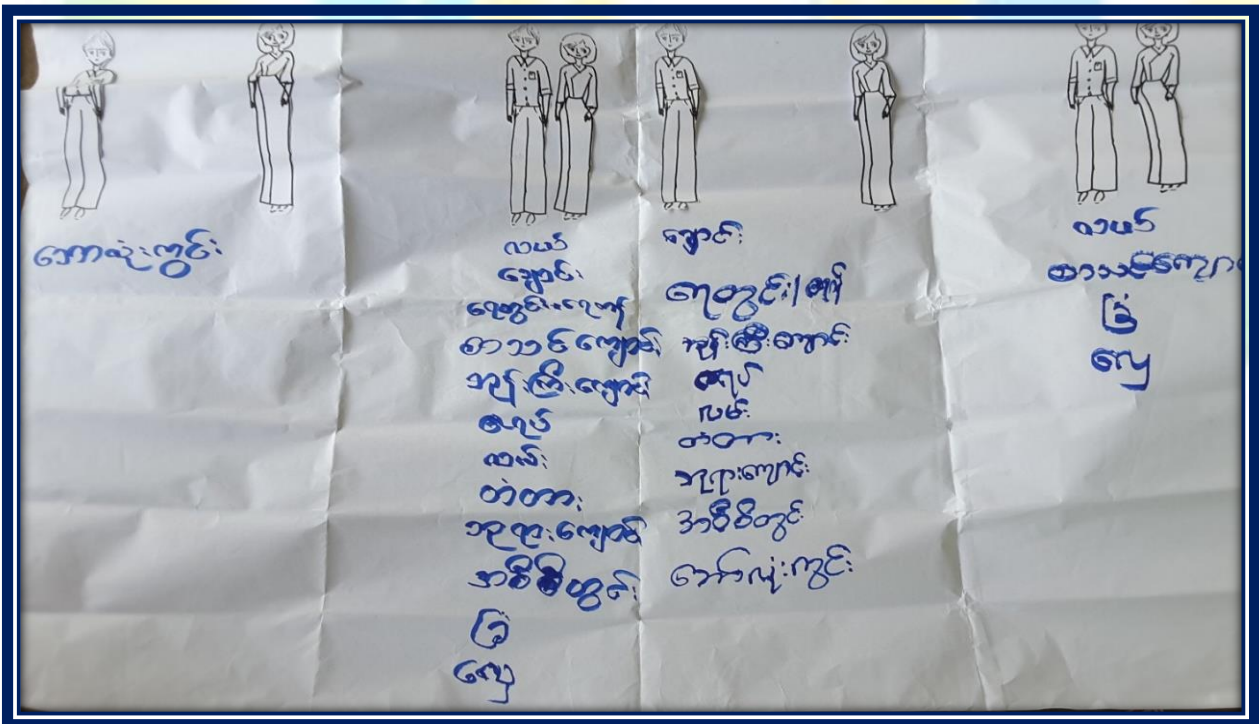 ဘောလုံးကွင်း
လယ်
ချောင်း
ရေတွင်း၊ ရေကန်
စာသင်ကျောင်း
ဘုန်းကြီးကျောင်း
ဇရပ်
လမ်း
တံတား
ဘုရားကျောင်း
အဝီစိတွင်း
ခြံ
လှေ
ချောင်း
ရေတွင်း/ကန်
ဘုန်းကြီးကျောင်း
ဇရပ်
လမ်း
တံတား
ဘုရားကျောင်း
အဝီစိတွင်း
ဘော်လုံးကွင်း
လယ်
စာသင်ကျော
ခြံ
လှေ